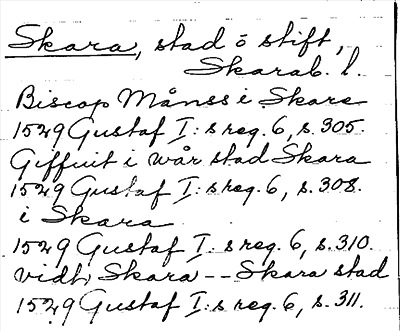 Skara, stad o stift,
Skarab. l.
Biscop Månss i Skare
1529 Gustaf I:s reg. 6, s. 305.
Giffuit i wår stad Skara
1529 Gustaf I:s reg. 6, s. 308.
i Skara
1529 Gustaf I:s reg. 6, s. 310.
vidh Skara -- Skara stad
1529 Gustaf I:s reg. 6, s. 311.